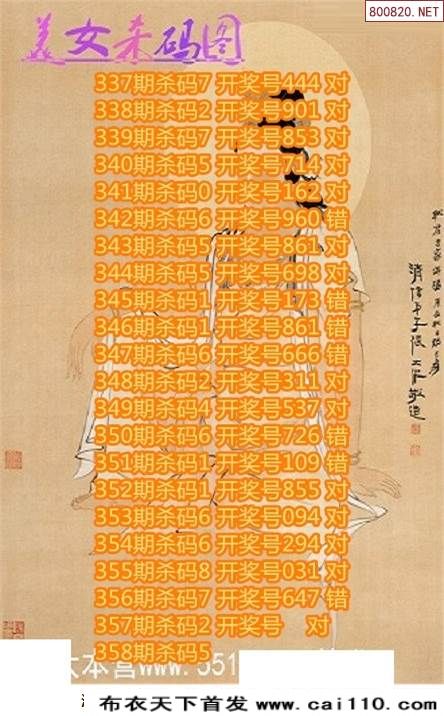 800820.NET
美女杀码图
337期杀码7 开奖号444 对
338期杀码2 开奖号901 对
339期杀码7 开奖号853 对
340期杀码5 开奖号714 对
341期杀码0 开奖号162 对
342期杀码6 开奖号960 错
343期杀码5 开奖号861 对
344期杀码5 开奖号698 对
345期杀码1 开奖号173 错
346期杀码1 开奖号861 错
347期杀码6 开奖号666 错
348期杀码2 开奖号311 对
349期杀码4 开奖号537 对
350期杀码6 开奖号726 错
351期杀码1 开奖号109 错
352期杀码1 开奖号853 对
353期杀码6 开奖号094 对
354期杀码6 开奖号294 对
355期杀码8 开奖号031 对
356期杀码7 开奖号647 错
357期杀码2 开奖号 对
358期杀码5
本营www.551
布衣天下首发 www.cai110.com